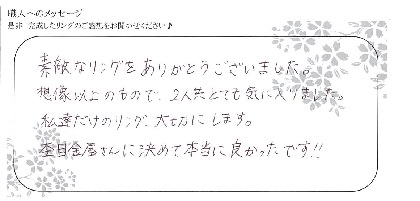 職人へのメッセージ
是非 完成したリングのご感想をお聞かせください♪
素敵なリングをありがとうございました。
想像以上のもので、2人共とても気に入りました。
私達だけのリング、大切にします。
杢目金屋さんに決めて本当に良かったです!!